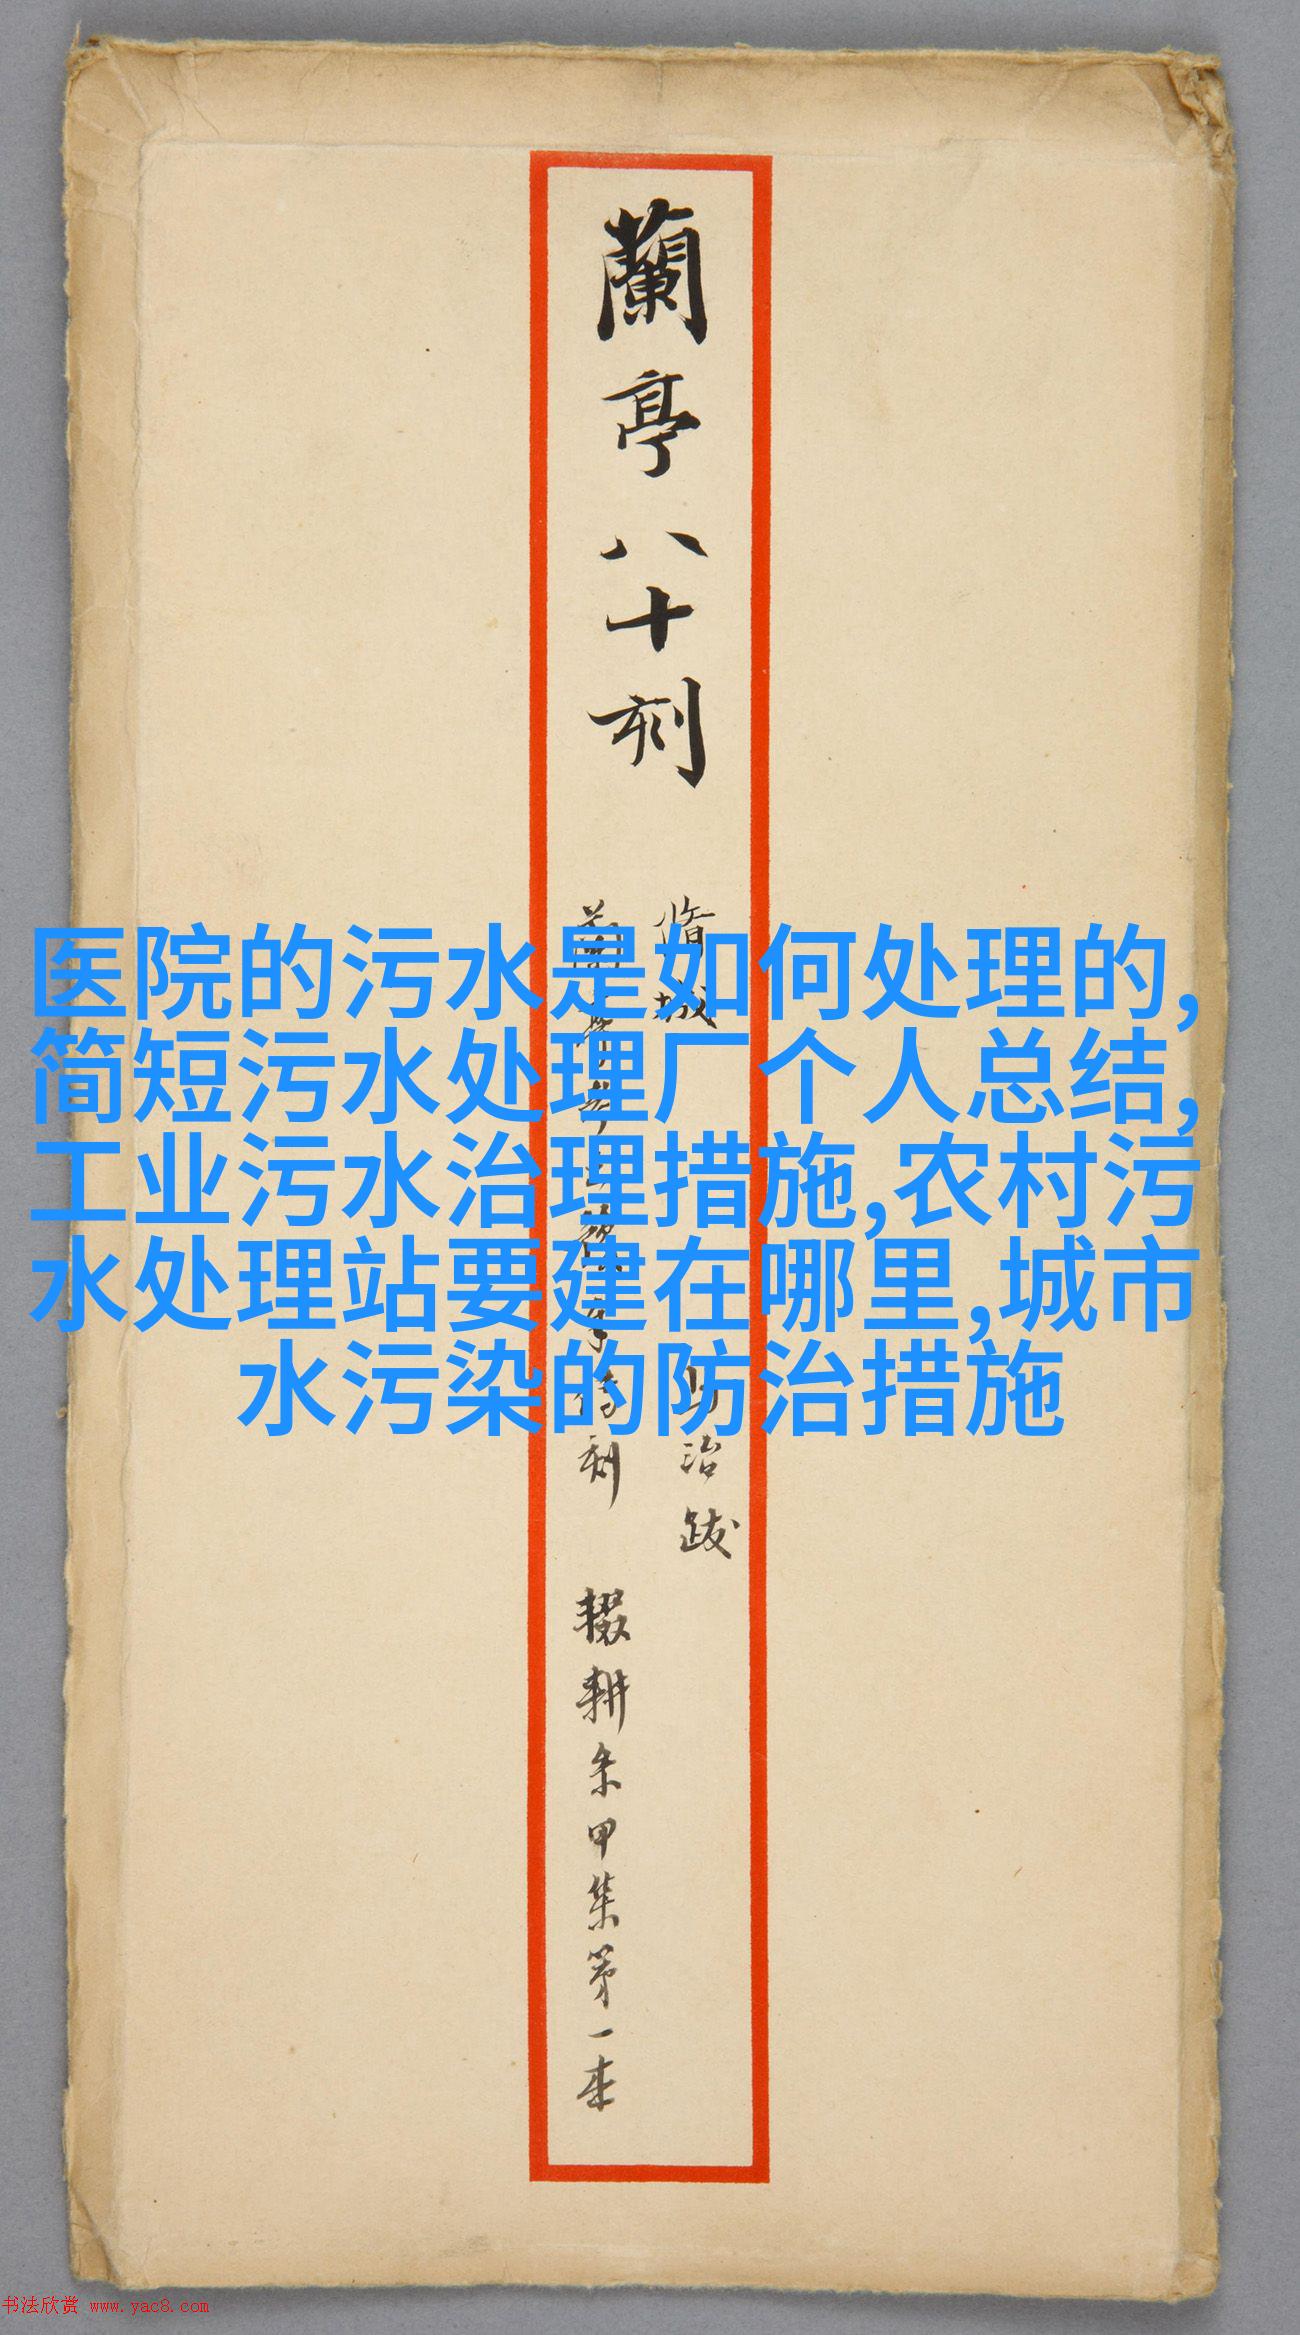 蘭亭八十刻
脩城
与治跋
蘭亭
本
刻
輟耕
甲集第一本
医院的污水是如何处理的,
简短污水处理厂个人总结,
工业污水治理措施,农村污
水处理站要建在哪里,城市
水污染的防治措施
书法欣赏 www.yac8.com